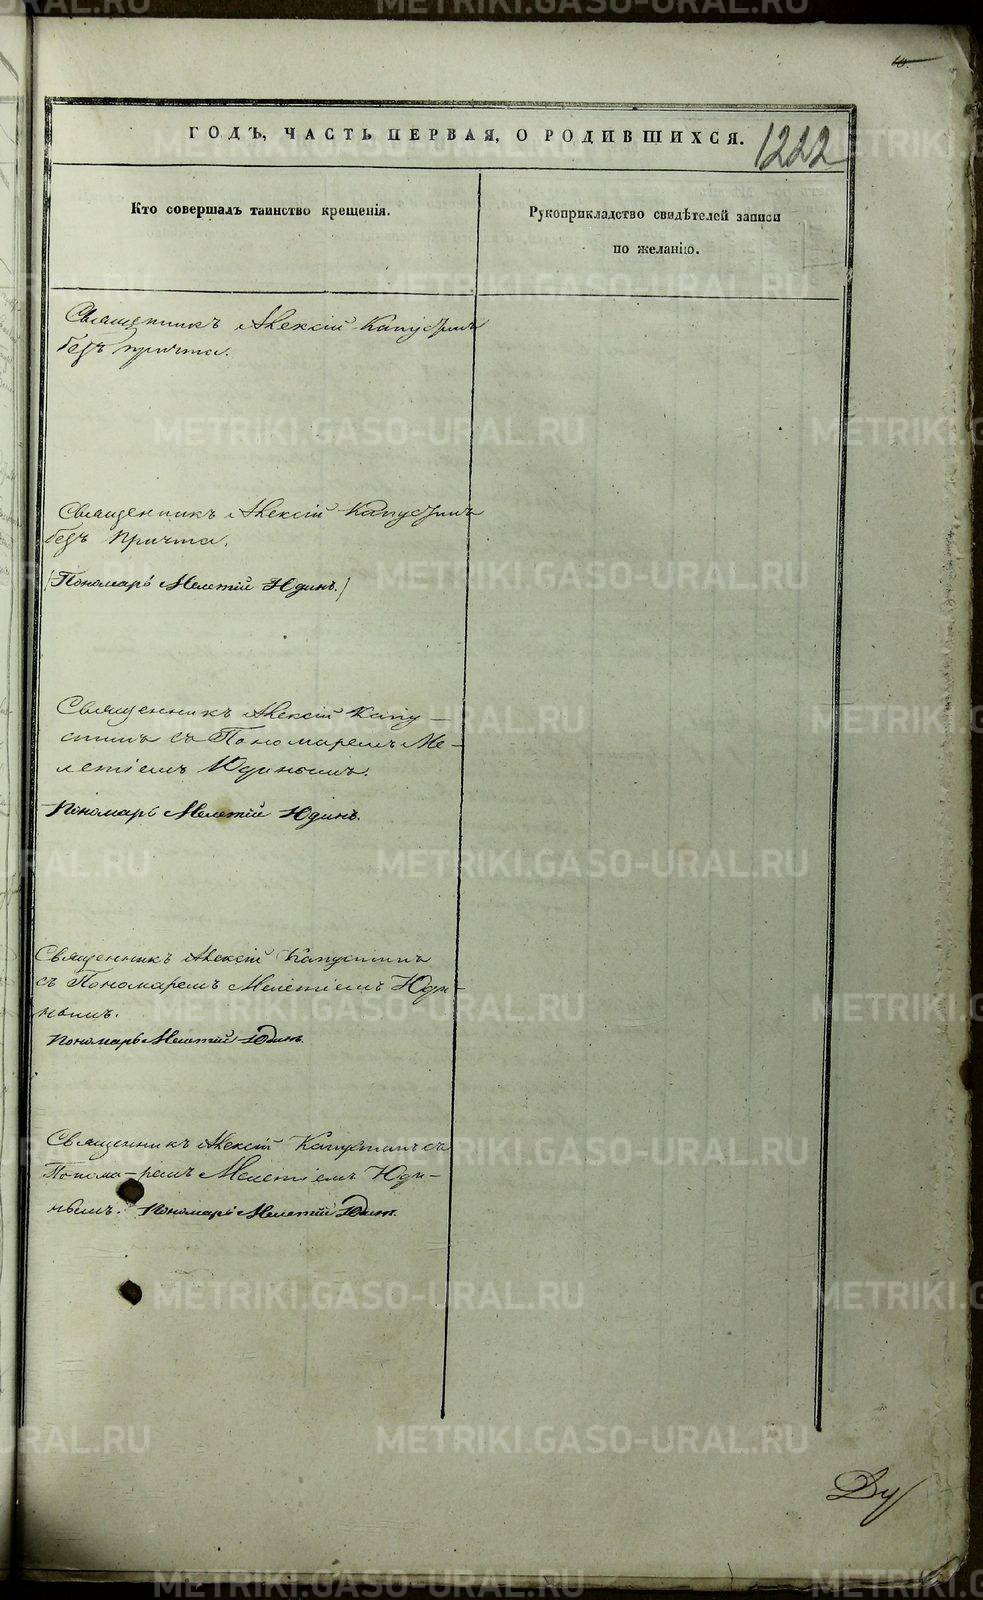 ГОДЪ, ЧАСТЬ ПЕРВАЯ, О РОДИВШИХСЯ.
1222
Кто совершалъ таинство крещенія.
Рукоприкладство свидѣтелей записи
по желанію.
Священникъ Алексій Капустинъ
безъ причта.
Священникъ Алексій Капустинъ
безъ Причта.
(Пономарь Мелетій Юдинъ.)
Священникъ Алексій Капу-
стинъ съ Пономаремъ Ме-
летіемъ Юдинымъ.
Пономарь Мелетій Юдинъ.
Священникъ Алексій Капустинъ
съ Пономаремъ Мелетіемъ Юди-
нымъ.
Пономарь Мелетій Юдинъ.
Священникъ Алексій Капустинъ съ
Понома-ремъ Мелетіемъ Юди-
нымъ. Пономарь Мелетій Юдинъ.
METRIKI.GASO-URAL.RU